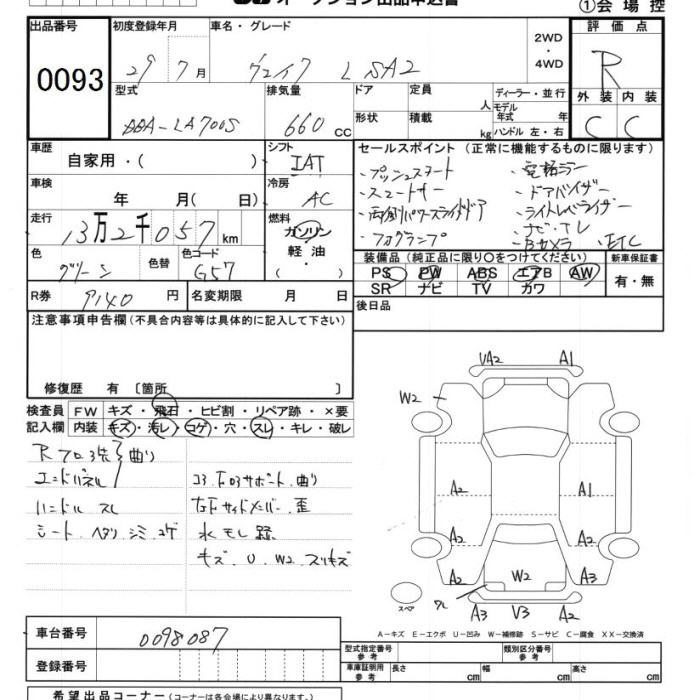 ①会場控
出品番号
0093
初度登録年月
29年7月
車名・グレード
ウェイク L SA2
2WD
・
4WD
評価点
R
外装 内装
C C
型式
DBA-LA700S
排気量
660 cc
ドア
形状
定員 人
積載 kg
ディーラー・並行
モデル
年式 年
ハンドル 左・右
車歴
自家用・( )
シフト
IAT
車検
年 月( )
冷房
AC
走行
13万2千057 km
燃料
ガソリン
軽油・
( )
色
グリーン
色替
色コード
G57
R券
9140 円
名変期限 月 日
セールスポイント (正常に機能するものに限ります)
・プッシュスタート
・スマートキー
・両側パワースライドドア
・フォグランプ
・電格ミラー
・ドアバイザー
・ライトレベライザー
・ナビ・TV
・Bカメラ ・ETC
装備品 (純正品に限り○をつけてください)
PS PW ABS エアB AW
SR ナビ TV カワ
新車保証書
有・無
後日品
注意事項申告欄 (不具合内容等は具体的に記入して下さい)
修復歴 有 〔箇所 〕
検査員
記入欄
FW キズ・飛石・ヒビ割・リペア跡・×要
内装 キズ・汚レ・コゲ・穴・スレ・キレ・破レ
エンドパネル
曲り
ハンドル スレ
シート・ヘタリ シミ コゲ
コアサポート 曲り
サイドメンバー 歪
水モレ跡
キズ U W2 スリキズ
VA2 A1
W2
A2 A1
A2 A2
A2 W2 A3
スペア
A3 V3 A2
A-キズ E-エクボ U-凹み W-補修跡 S-サビ C-腐食 XX-交換済
車台番号
0098087
登録番号
型式指定番号
参考
類別区分番号
参考
車庫証明用
参考
長さ cm
幅 cm
高さ cm
希望出品コーナー (コーナーは各会場により異なります。)